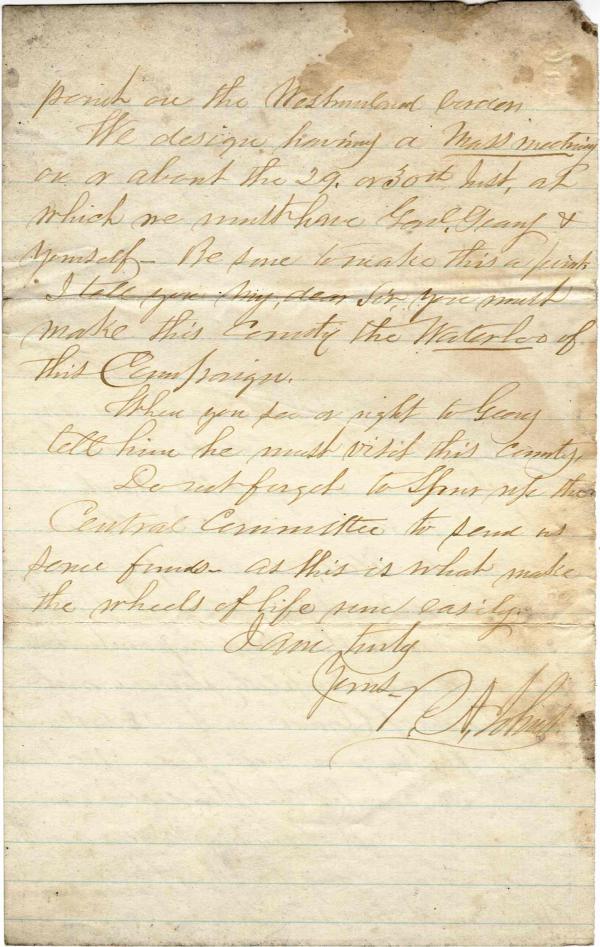 on the Westmorland border
We design having a Mass meeting
on or about the 29. or 30th Inst, at
which we must have Genl. Geary &
yourself - Be sure to make this a
I tell you my, dear Sir, you must
make this County the Waterloo of
this Campaign.
When you see or right to Geary
tell him he must visit this County,
Do not forget to Spur up the
Central Committee to send us
some funds - as this is what make
the wheels of life run easily
I am truly
Yours
A.